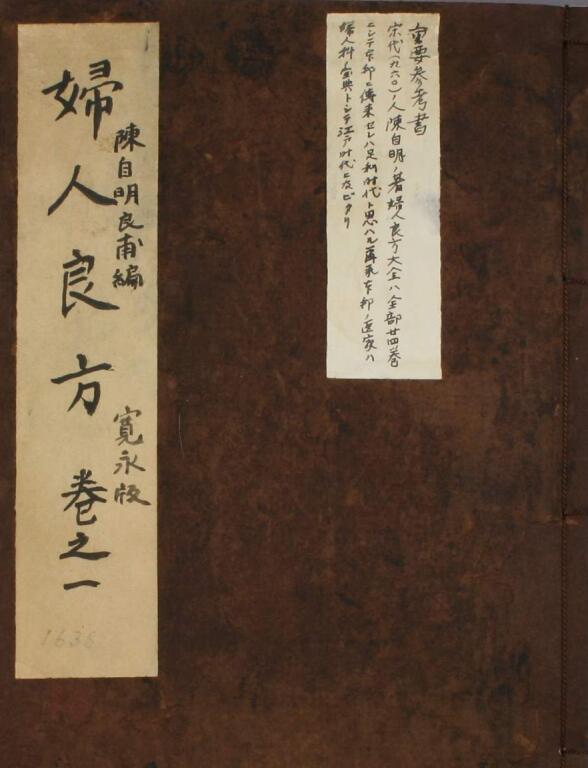 重要参考書
宋代(九六〇)ノ人陳自明ノ著婦人良方大全ハ全部廿四巻
ニシテ本邦ニ傳来セシハ足利時代ト思ハル爾来本邦ノ医家ハ
婦人科ノ宝典トシテ江戸時代ニ及ビタリ
陳自明良甫編
寛永版
婦人良方 巻之一
1636